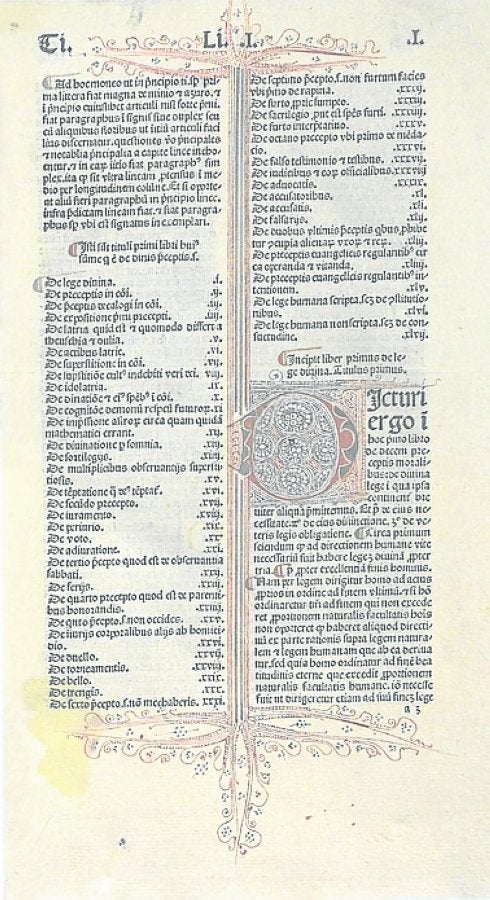 Ti. Li. .I. .I.
Ad hoc moneo ut in ṗncipio ti. ſp ṗri-
ma littera fiat magna
cuiuſlibet articuli niſi forte
fiat paragraphus
articuli faci
lius diſcernatur. queſtiones vo ṗncipales
⁊ notabilia ṗncipalia a capite linee incho-
fiat paragraph⁹ ſim
plex. ita ꝙ ſit vltra lineam ptenſas i me
dio per longitudinem colūne. Et ſi oporte
at aliū fieri paragraphū in ṗncipio linee.
infra ṗdictam lineam fiat. ⁊ fiat paragra-
phus ſp vbi eſt ſignatus in exemplari.
Iſti ſūt tituli primi libri hui⁹
ſūme q̄ ē de diuis ṗceptis. ſ.
De lege diuina. .i.
De preceptis in cōi. .ij.
De ṗceptis decalogi in cōi. .iij.
De expoſitione ṗmi precepti. .iiij.
De latria quid eſt ⁊ quomodo differt a
theuſebia ⁊ dulia. .v.
De actibus latrie. .vi.
De ſuperſtitione in cōi. .vij.
De ſupſtitiōe cult⁹ indebiti veri dei. viij.
De idolatria. .ix.
De diuinatiōe ⁊ ei⁹ ſpēb⁹ i cōi. .x.
De cognitōe demonū reſpectu futuroꝝ. xi
De impſſione aſtroꝝ circa quam quidā
mathematici errant. .xij.
De diuinatione p ſomnia. .xiij.
De ſortilegijs. .xiiij.
De multiplicibus obſeruantijs ſuperſti-
tioſis. .xv.
De tēptatione q̄ de⁹ tēptat᷑. .xvi.
De ſecūdo precepto. .xvij.
De iuramento. .xviij.
De periurio. .xix.
De voto. .xx.
De adiuratione. .xxi.
De tertio ṗcepto quod eſt de obſeruantia
ſabbati. .xxij.
De ferijs. .xxiij.
De quarto precepto quod eſt de parenti-
bus honorandis. .xxiiij.
De qnto ṗcepto. ſ. non occides. .xxv.
De iniurijs corporalibus alijs ab homici-
dio. .xxvi.
De duello. .xxvij.
De torneamentis. .xxviij.
De bello. .xxix.
De treugis. .xxx.
De ſexto ṗcepto. ſ. nō mechaberis. .xxxi.
De ſeptimo ṗcepto. ſ. non furtum facies
vbi ṗmo de rapina. .xxxij.
De furto ſumpto. .xxxiij.
De ſacrilegio ꝓut eſt ſpēs furti. .xxxiiij.
De furto interptatiuo. .xxxv.
De octauo precepto vbi primo de mēda-
cio. .xxxvi.
De falſo teſtimonio ⁊ teſtibus. .xxxvij.
De iudicibus ⁊ eoꝝ officialibus. xxxviij
De aduocatis. .xxxix.
De accuſatoribus. .xl.
De accuſatis. .xli.
De falſarijs. .xlij.
De duobus vltimis ṗceptis qbus ꝓhibe
tur ꝯcupia alienaꝝ vxoꝝ ⁊ reꝝ. .xliij.
De preceptis euangelicis regulantib⁹ cir
ca operanda ⁊ vitanda. .xliiij.
De preceptis euangelicis regulantib⁹ in-
tentionem. .xlv.
De lege humana ſcripta. ſcꝫ de ꝯſtitutio-
nibus. .xlvi.
De lege humana non ſcripta. ſcꝫ de con-
ſuetudine. .xlvij.
Incipit liber primus de le-
ge diuina. Titulus primus.
Dicturi
ergo i
hoc ṗmo libro
de decem pre-
ceptis morali-
bus ⁊ de diuina
lege i qua ipſa
continent᷑ bre
uiter aliqua ṗmittemus. Et ṗº de eius ne-
ceſſitate. 2º de eius diuiſione. 3º de ve-
teris legis obligatione. Circa primum
ſciendum ꝙ ad directionem humane vite
neceſſariū fuit habere legeꝫ diuinā ꝓpter
tria. ṗº ꝓpter excellentiā finis hominis.
Nam per legem dirigitur homo ad actus
ꝓprios in ordine ad finem vltimū. ⁊ ſi hō
ordinaretur tm̄ ad finem qui non excede
ret ꝓportionem naturalis facultatis hois
non oporteret ꝙ haberet aliquod directi-
uū ex parte rationis ſupra legem natura-
lem ⁊ legem humanam que ab ea deriua
tur. ſed quia homo ordinatur ad finē bea
titudinis eterne que excedit ꝓportionem
naturalis facultatis humane. iō neceſſe
fuit ut dirigeretur etiam ad ſuū fineꝫ lege
a 3